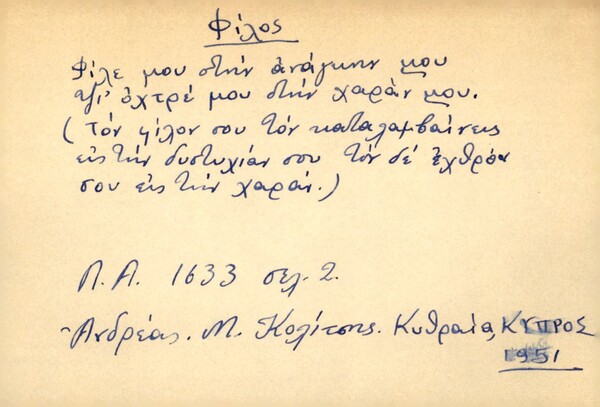 Φίλος
Φίλε μου στήν ἀνάγκην μου
τζι' ὀχτρέ μου στήν χαράν μου.
(Τόν φίλον σου τόν καταλαμβαίνεις
εἰς τήν δυστυχίαν σου τόν δέ ἐχθρόν
σου εἰς τήν χαράν.)
Λ.Α. 1633 σελ. 2.
Ἀνδρέας. Μ. Κολίτσης. Κυθραία, ΚΥΠΡΟΣ
1951